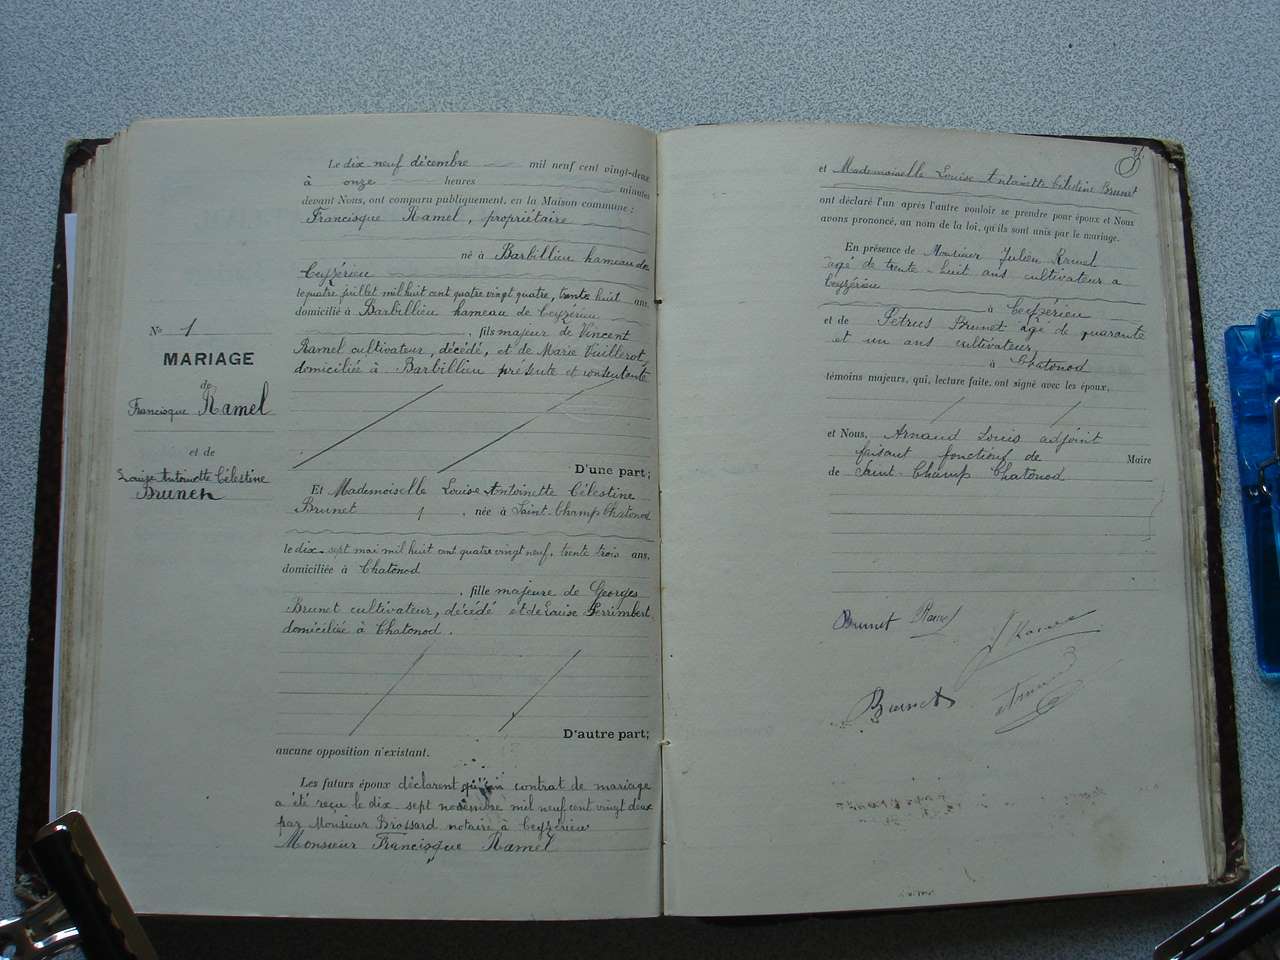 Nº 1
MARIAGE
de
Francisque Ramel
et de
Louise Antoinette Célestine
Brunet
Le dix neuf décembre mil neuf cent vingt-deux
à onze heures minutes
devant Nous, ont comparu publiquement, en la Maison commune :
Francisque Ramel, propriétaire
né à Barbillieu hameau de
Ceyzérieu
le quatre juillet mil huit cent quatre vingt quatre, trente huit ans,
domicilié à Barbillieu hameau de Ceyzérieu
, fils majeur de Vincent
Ramel cultivateur, décédé, et de Marie Vuillerot,
domiciliée à Barbillieu présente et consentante
D'une part ;
Et Mademoiselle Louise Antoinette Célestine
Brunet , née à Saint-Champ Chatonod
le dix-sept mai mil huit cent quatre vingt neuf, trente trois ans,
domiciliée à Chatonod
, fille majeure de Georges
Brunet cultivateur, décédé et de Louise Perrimbert
domiciliée à Chatonod.
D'autre part ;
aucune opposition n'existant.
Les futurs époux déclarent qu'un contrat de mariage
a été reçu le dix-sept novembre mil neuf cent vingt deux
par Monsieur Brossard notaire à Ceyzérieu
Monsieur Francisque Ramel
et Mademoiselle Louise Antoinette Célestine Brunet
ont déclaré l'un après l'autre vouloir se prendre pour époux et Nous
avons prononcé, au nom de la loi, qu'ils sont unis par le mariage.
En présence de Monsieur Julien Ramel
âgé de trente-huit ans cultivateur a
Ceyzérieu
à Ceyzérieu
et de Petrus Brunet âgé de quarante
et un ans cultivateur
à Chatonod
témoins majeurs, qui, lecture faite, ont signé avec les époux,
et Nous, Arnaud Louis adjoint
faisant fonctions de Maire
de Saint-Champ Chatonod
Brunet Ramel
Brunet